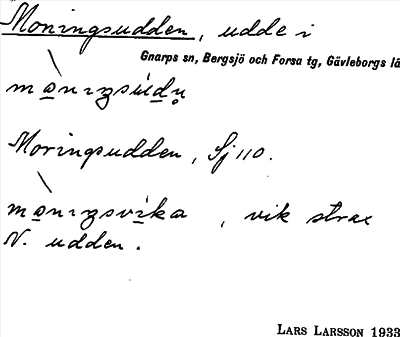 Moningsudden, udde i
Gnarps sn, Bergsjö och Forsa tg, Gävleborgs lä
mo̲nıŋsùd̲n̥
Moringsudden, Sj 110.
mo̲nıŋsvi̲ka, vik strax
N. udden.
LARS LARSSON 1933